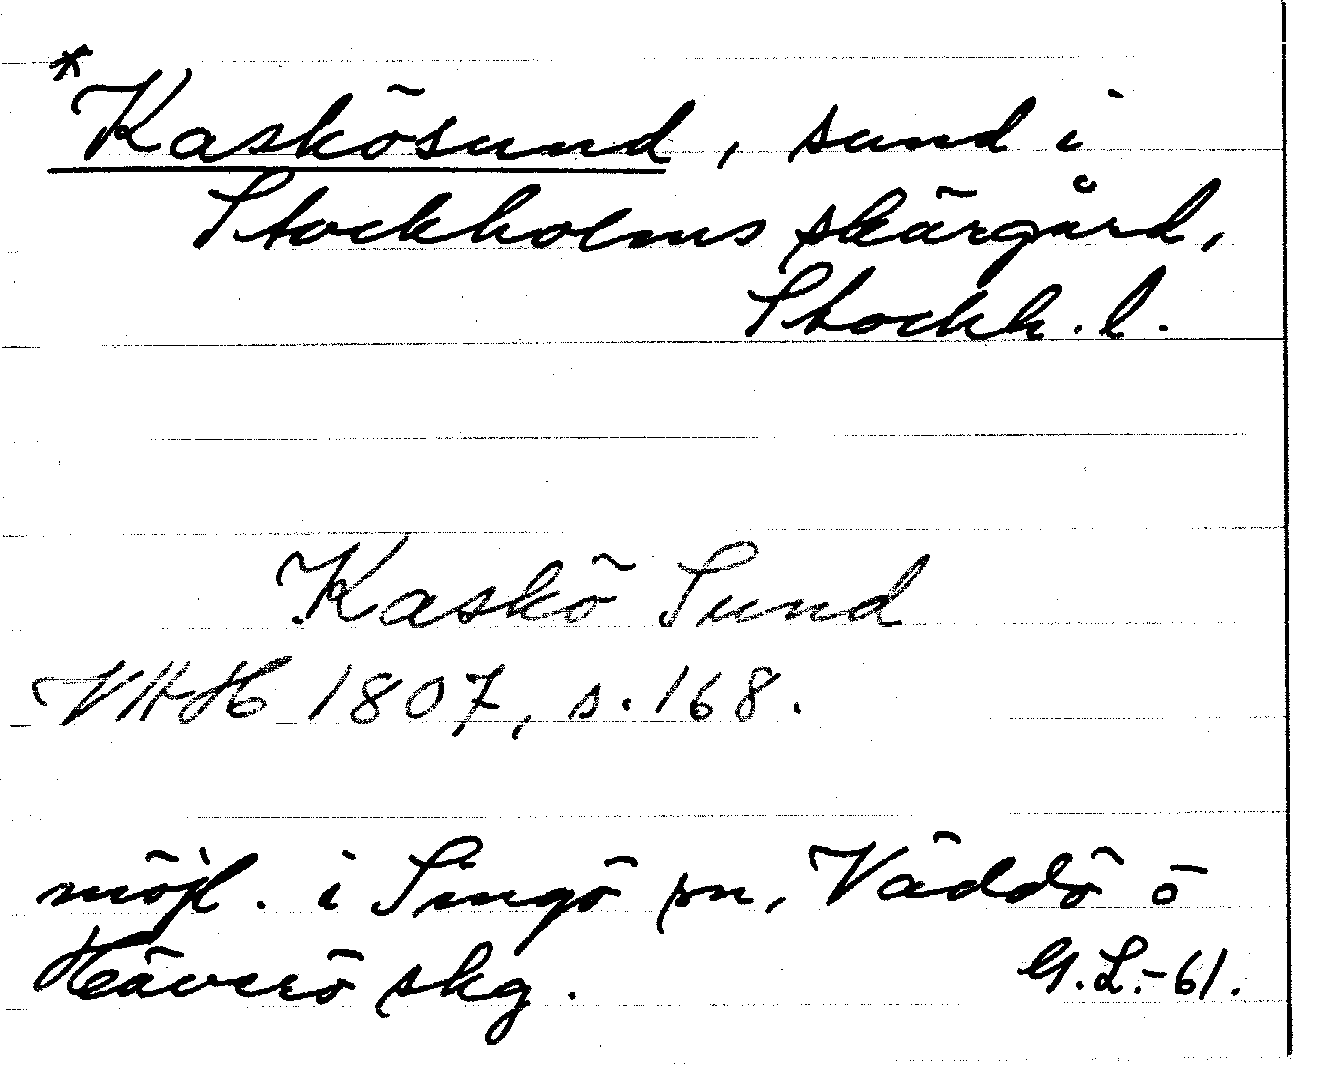 *Kaskösund, sund i
Stockholms skärgård,
Stockh. l.
Kaskö Sund
VHAH 1807, s. 168.
möjl. i Singö sn, Väddö o
Häverö skg.
G.L.-61.